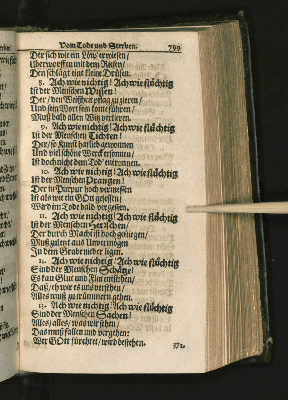 Vom Tode und Sterben. 799
Der sich wie ein Löw erwiesen/
Uberworffen mit dem Riesen/
Den schlägt eine kleine Drüsen.
8. Ach wie nichtig! Ach wie flüchtig
Ist der Menschen Wissen!
Der/ den Weißheit pflag zu zieren/
Und sein Wort
Muß bald allen Witz verlieren.
9. Ach wie nichtig! Ach wie flüchtig
Ist der Menschen Tichten!
Der/ so Kunst hat lieb gewonnen
Und viel schöne Werck ersonnen/
Ist doch nicht dem Tod entronnen.
10. Ach wie nichtig! Ach wie flüchtig
Ist der Menschen Prangen!
Der in Purpur hoch vermessen
Ist als wie ein GOtt gesessen/
Wird im Tode bald vergessen.
11. Ach wie nichtig! Ach wie flüchtig
Ist der Menschen Herrschen/
Der durch Macht ist hoch gestiegen/
Muß zuletzt aus Unvermögen
In dem Grabe nieder ligen.
12. Ach wie nichtig! Ach wie flüchtig
Sind der Menschen Schätze!
Es kan Glut und Flut entstehen/
Daß/ eh wir es uns versehen/
Alles muß zu trümmern gehen.
13. Ach wie nichtig! Ach wie flüchtig
Sind der Menschen Sachen!
Alles/ alles/ was wir sehen/
Das muß fallen und vergehen:
Wer GOtt fürchtet/ wird bestehen.
372.